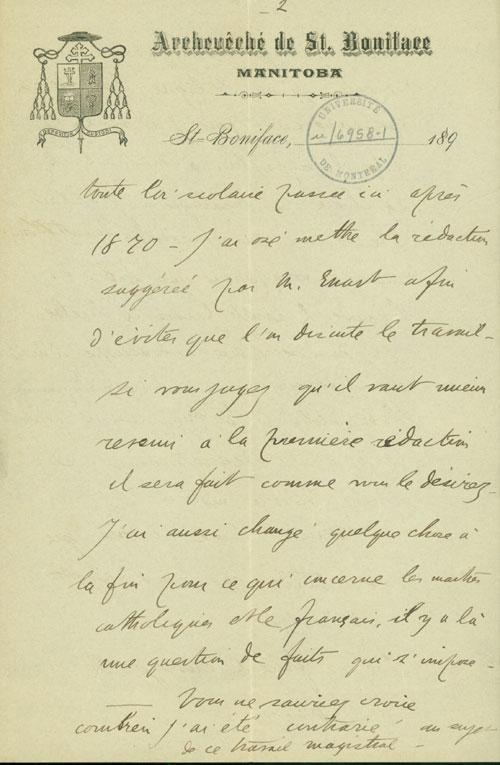 2
Archevêché de St. Boniface
MANITOBA
St-Boniface, 189
UNIVERSITÉ
DE MONTRÉAL
/6958-1
toute loi scolaire passée ici après
1870 - J'ai osé mettre la rédaction
suggérée par M. Ewart afin
d'éviter que l'on discute le travail -
si vous jugez qu'il vaut mieux
revenir à la première rédaction
il sera fait comme vous le désirez -
J'ai aussi changé quelque chose à
la fin pour ce qui concerne les maîtres
catholiques et le français, il y a là
une question de faits qui s'impose -
Vous ne sauriez croire
combien j'ai été contrarié au sujet
de ce travail magistral -